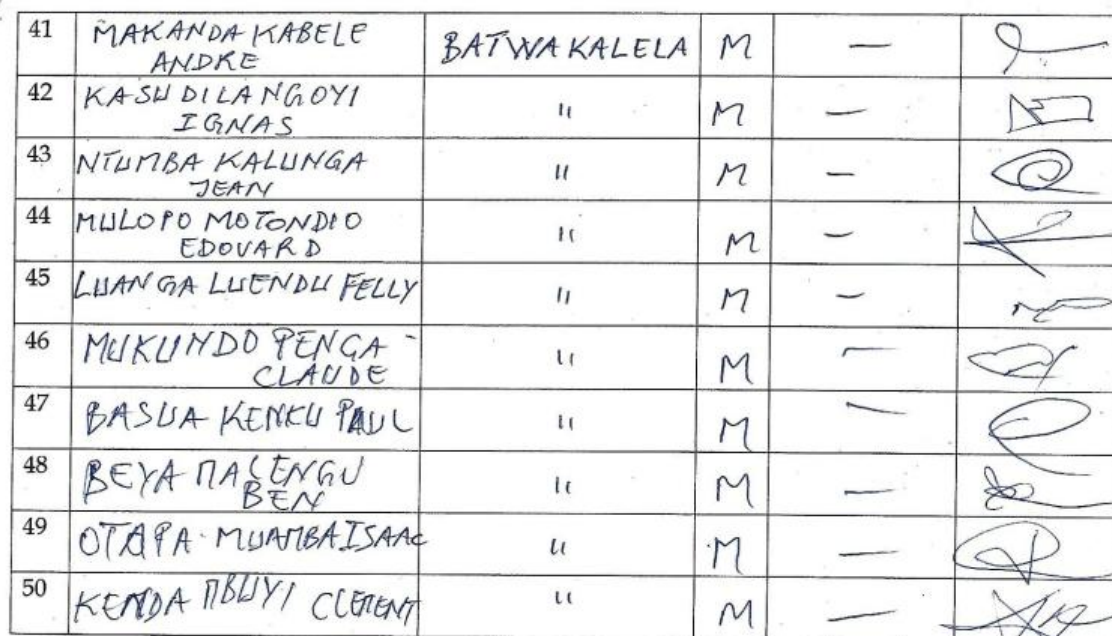 41 MAKANDA KABELE BATWA KALELA M —
ANDRE
42 KASUDILANGOYI " M —
IGNAS
43 NTUMBA KALUNGA " M —
JEAN
44 MULOPO MOTONDIO " M —
EDOUARD
45 LUANGA LUENDU FELLY " M —
46 MUKUNDO PENGA - " M —
CLAUDE
47 BASUA KENKU PAUL " M —
48 BEYA MALENGU " M —
BEN
49 OTAPA MUAMBA ISAAC " M —
50 KENDA MBUYI CLEMENT " M —